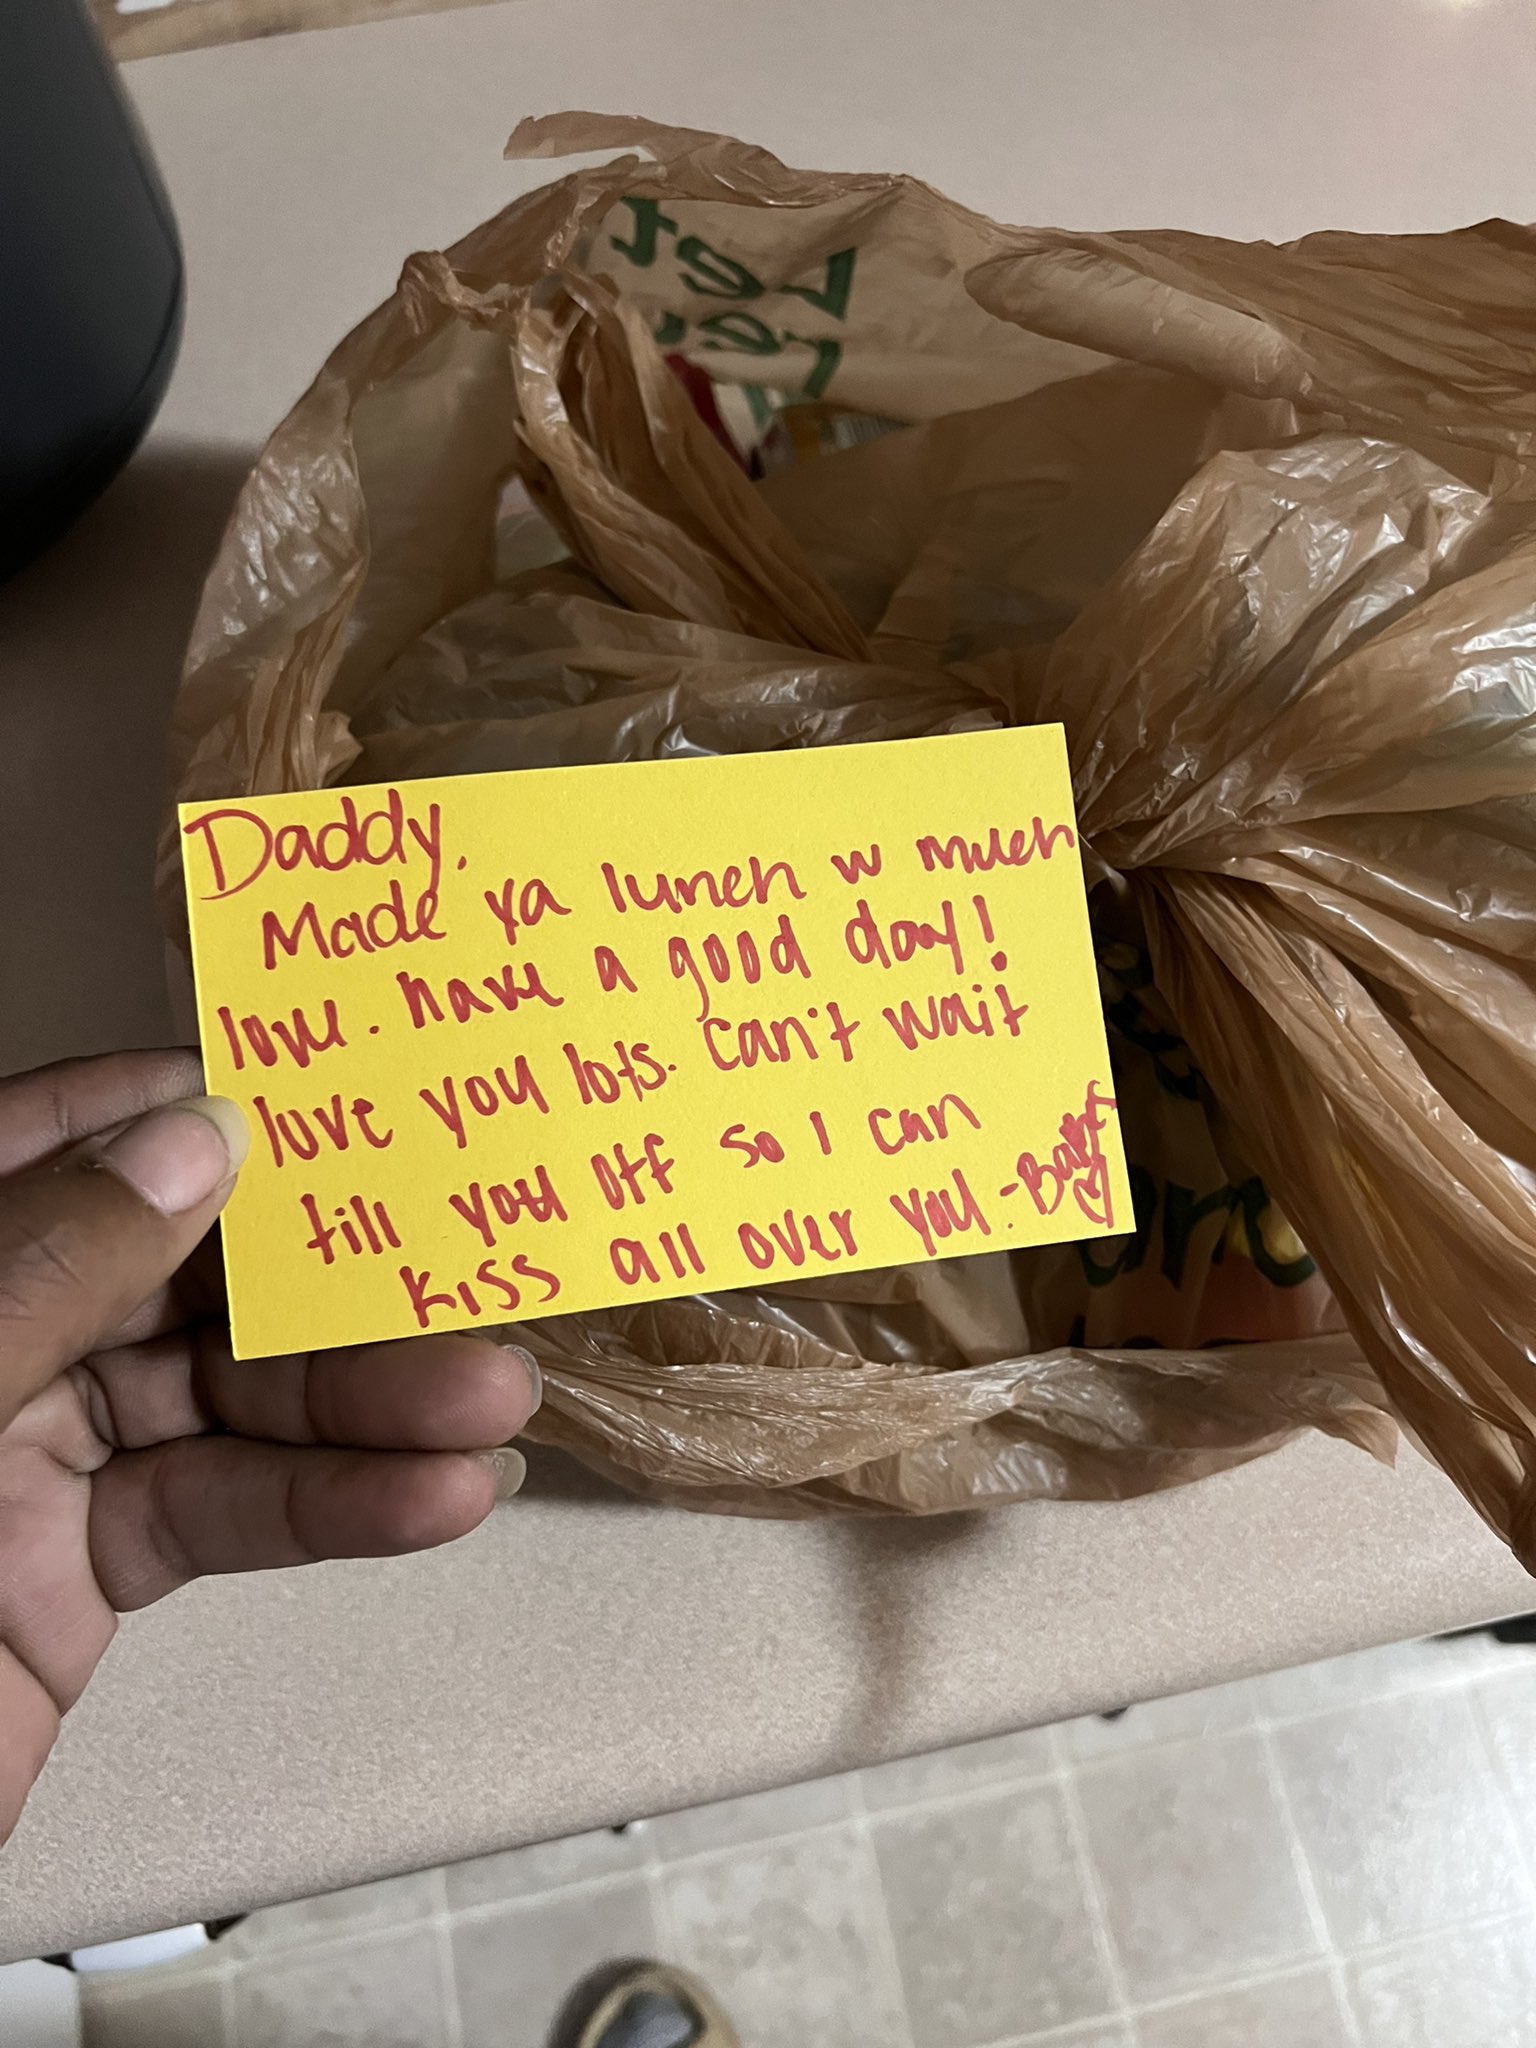 Let
Daddy,
Made ya lunch w much
love. have a good day!
love you lots. can't wait
till you off so I can
kiss all over you. - Babes